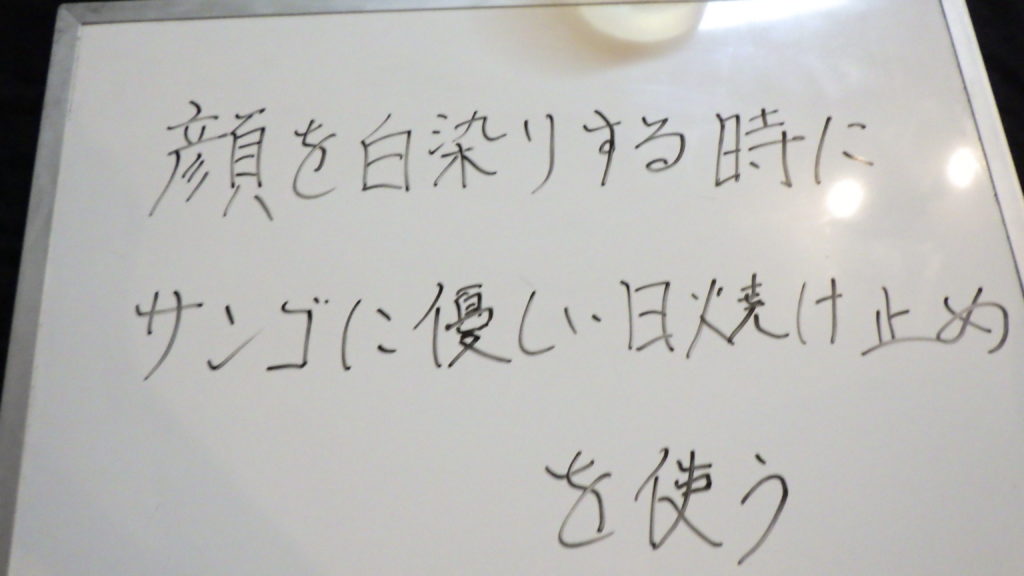 顔を白染りする時に
サンゴに優しい日焼け止め
を使う